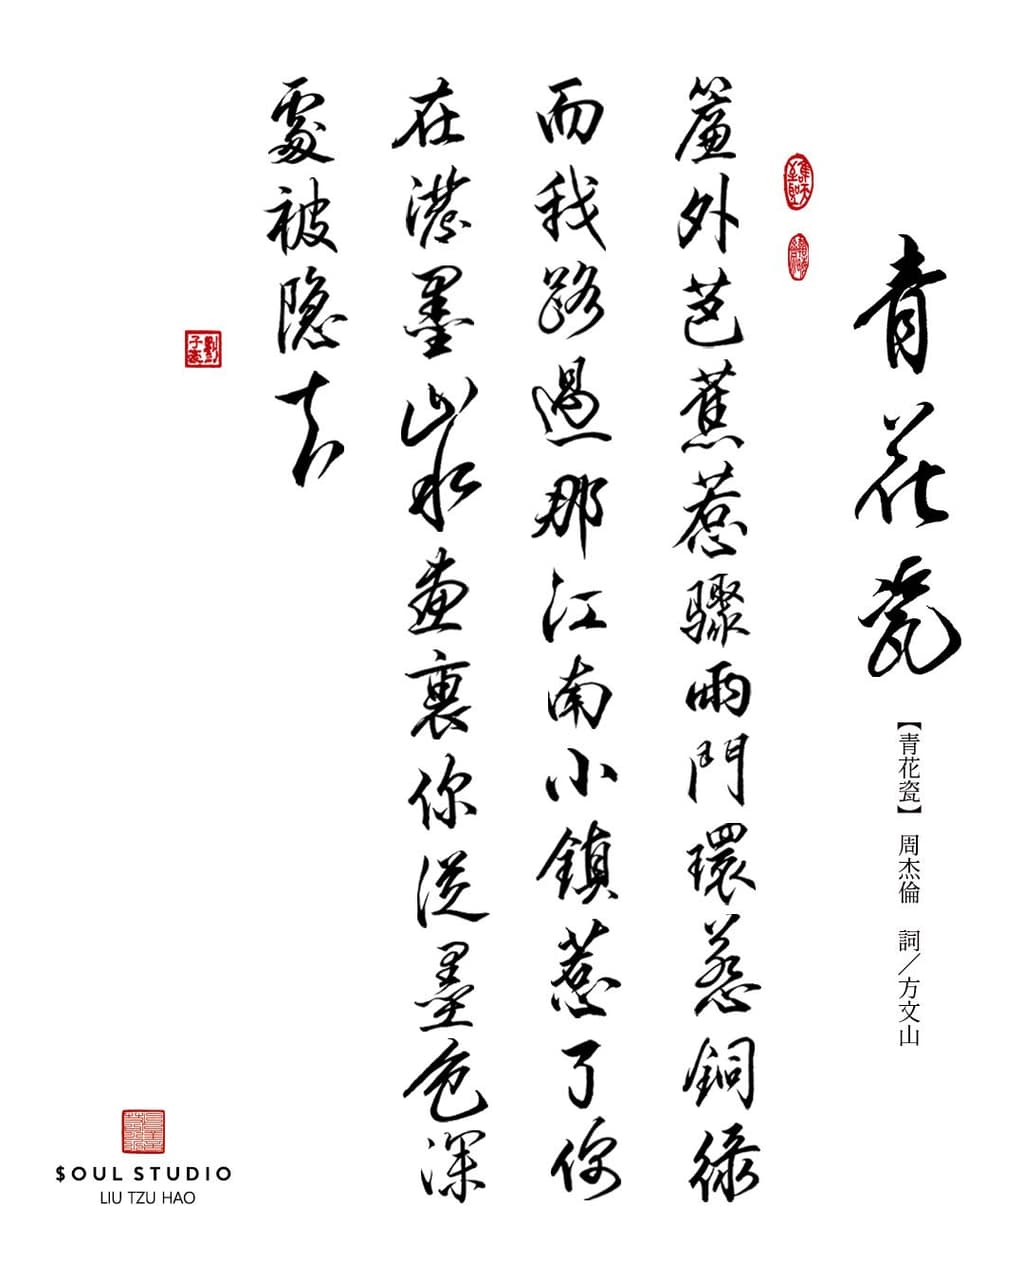 青花瓷
【青花瓷】 周杰倫 詞／方文山
簾外芭蕉惹驟雨門環惹銅綠
而我路過那江南小鎮惹了你
在潑墨山水畫裏你從墨色深
處被隱去
$OUL STUDIO
LIU TZU HAO